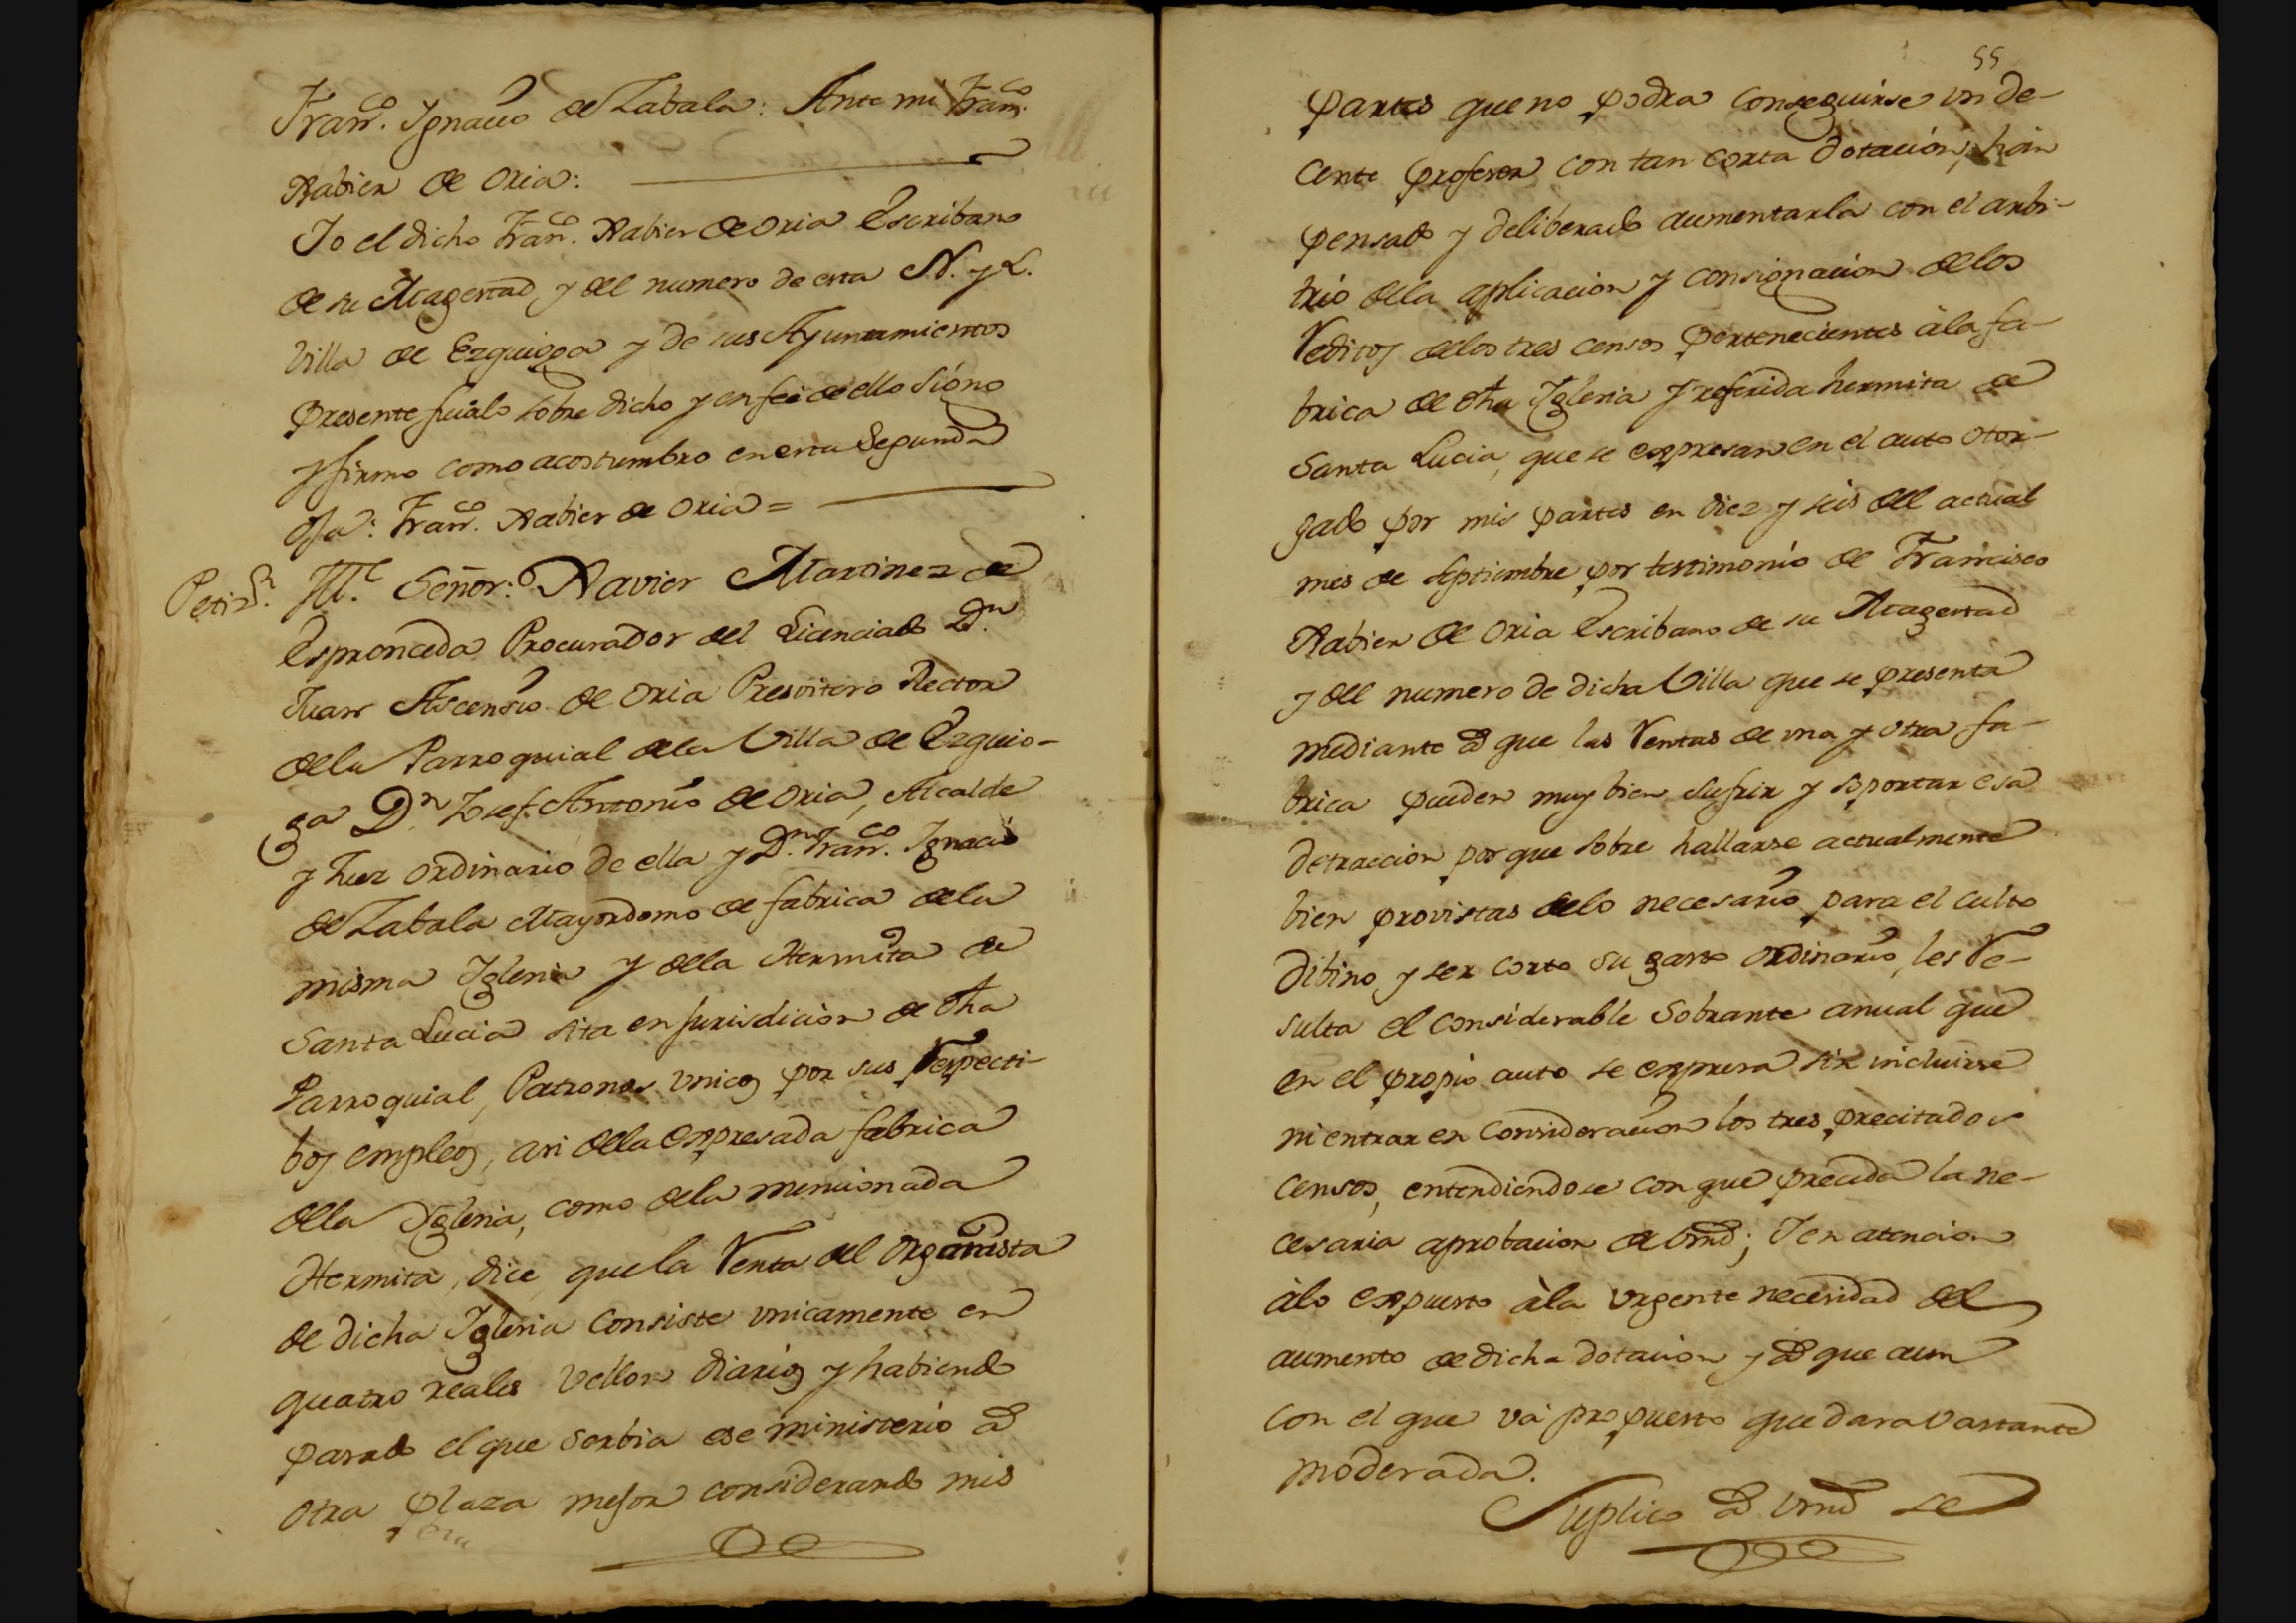 Fran.co Ygnacio de Zabala: Ante mi Fran.co
Xabier de Oria:
Yo el dicho Fran.co Xabier de Oria Escribano
de su Magestad, y del numero de esta N. y L.
Villa de Ezquioga y de sus Ayuntamientos
presente fui à lo sobre dicho y en fee de ello signo
y firmo como acostumbro en esta segunda
oja: Fran.co Xabier de Oria =
Petiz.n
Ill.e Señor: Xavier Martinez de
Espronceda Procurador del Licenciado D.n
Juan Ascensio de Oria Presvitero Rector
de la Parroquial de la Villa de Ezquio-
ga D.n Josef Antonio de Oria, Alcalde
y Juez ordinario de ella y D.n Fran.co Ygnacio
de Zabala Mayordomo de fabrica de la
misma Yglesia y de la Hermita de
Santa Lucia sita en jurisdicion de dha
Parroquial, Patronos unicos por sus respecti-
bos empleos, asi de la expresada fabrica
de la Yglesia, como de la mencionada
Hermita, dice que la renta del Organista
de dicha Yglesia consiste unicamente en
quatro reales vellon diarios y habiendo
pasado el que serbia ese ministerio à
otra plaza mejor considerando mis
55
partes que no podra conseguirse un de-
cente profesor con tan corta dotacion, hàn
pensado y deliberado aumentarla con el arbi-
trio de la aplicacion y consignacion de los
reditos de los tres censos pertenecientes à la fa-
brica de dha Yglesia y referida hermita de
Santa Lucia, que se expresan en el auto otor-
gado por mis partes en diez y seis del actual
mes de septiembre por testimonio de Francisco
Xabier de Oria Escribano de su Magestad
y del numero de dicha Villa que se presenta
mediante à que las rentas de una y otra fa-
brica pueden muy bien sufrir y soportar esa
detraccion por que sobre hallarse actualmente
bien provistas de lo necesario para el culto
Dibino y ser corto su gasto ordinario, les re-
sulta el considerable sobrante anual que
en el propio auto se expresa sin incluirse
ni entrar en consideracion los tres precitados
censos, entendiendose con que preceda la ne-
cesaria aprobacion de Vmd; Y en atencion
à lo expuesto à la urgente necesidad del
aumento de dicha dotacion y à que aun
con el que và propuesto quedara vastante
moderada.
Suplico à Vmd se